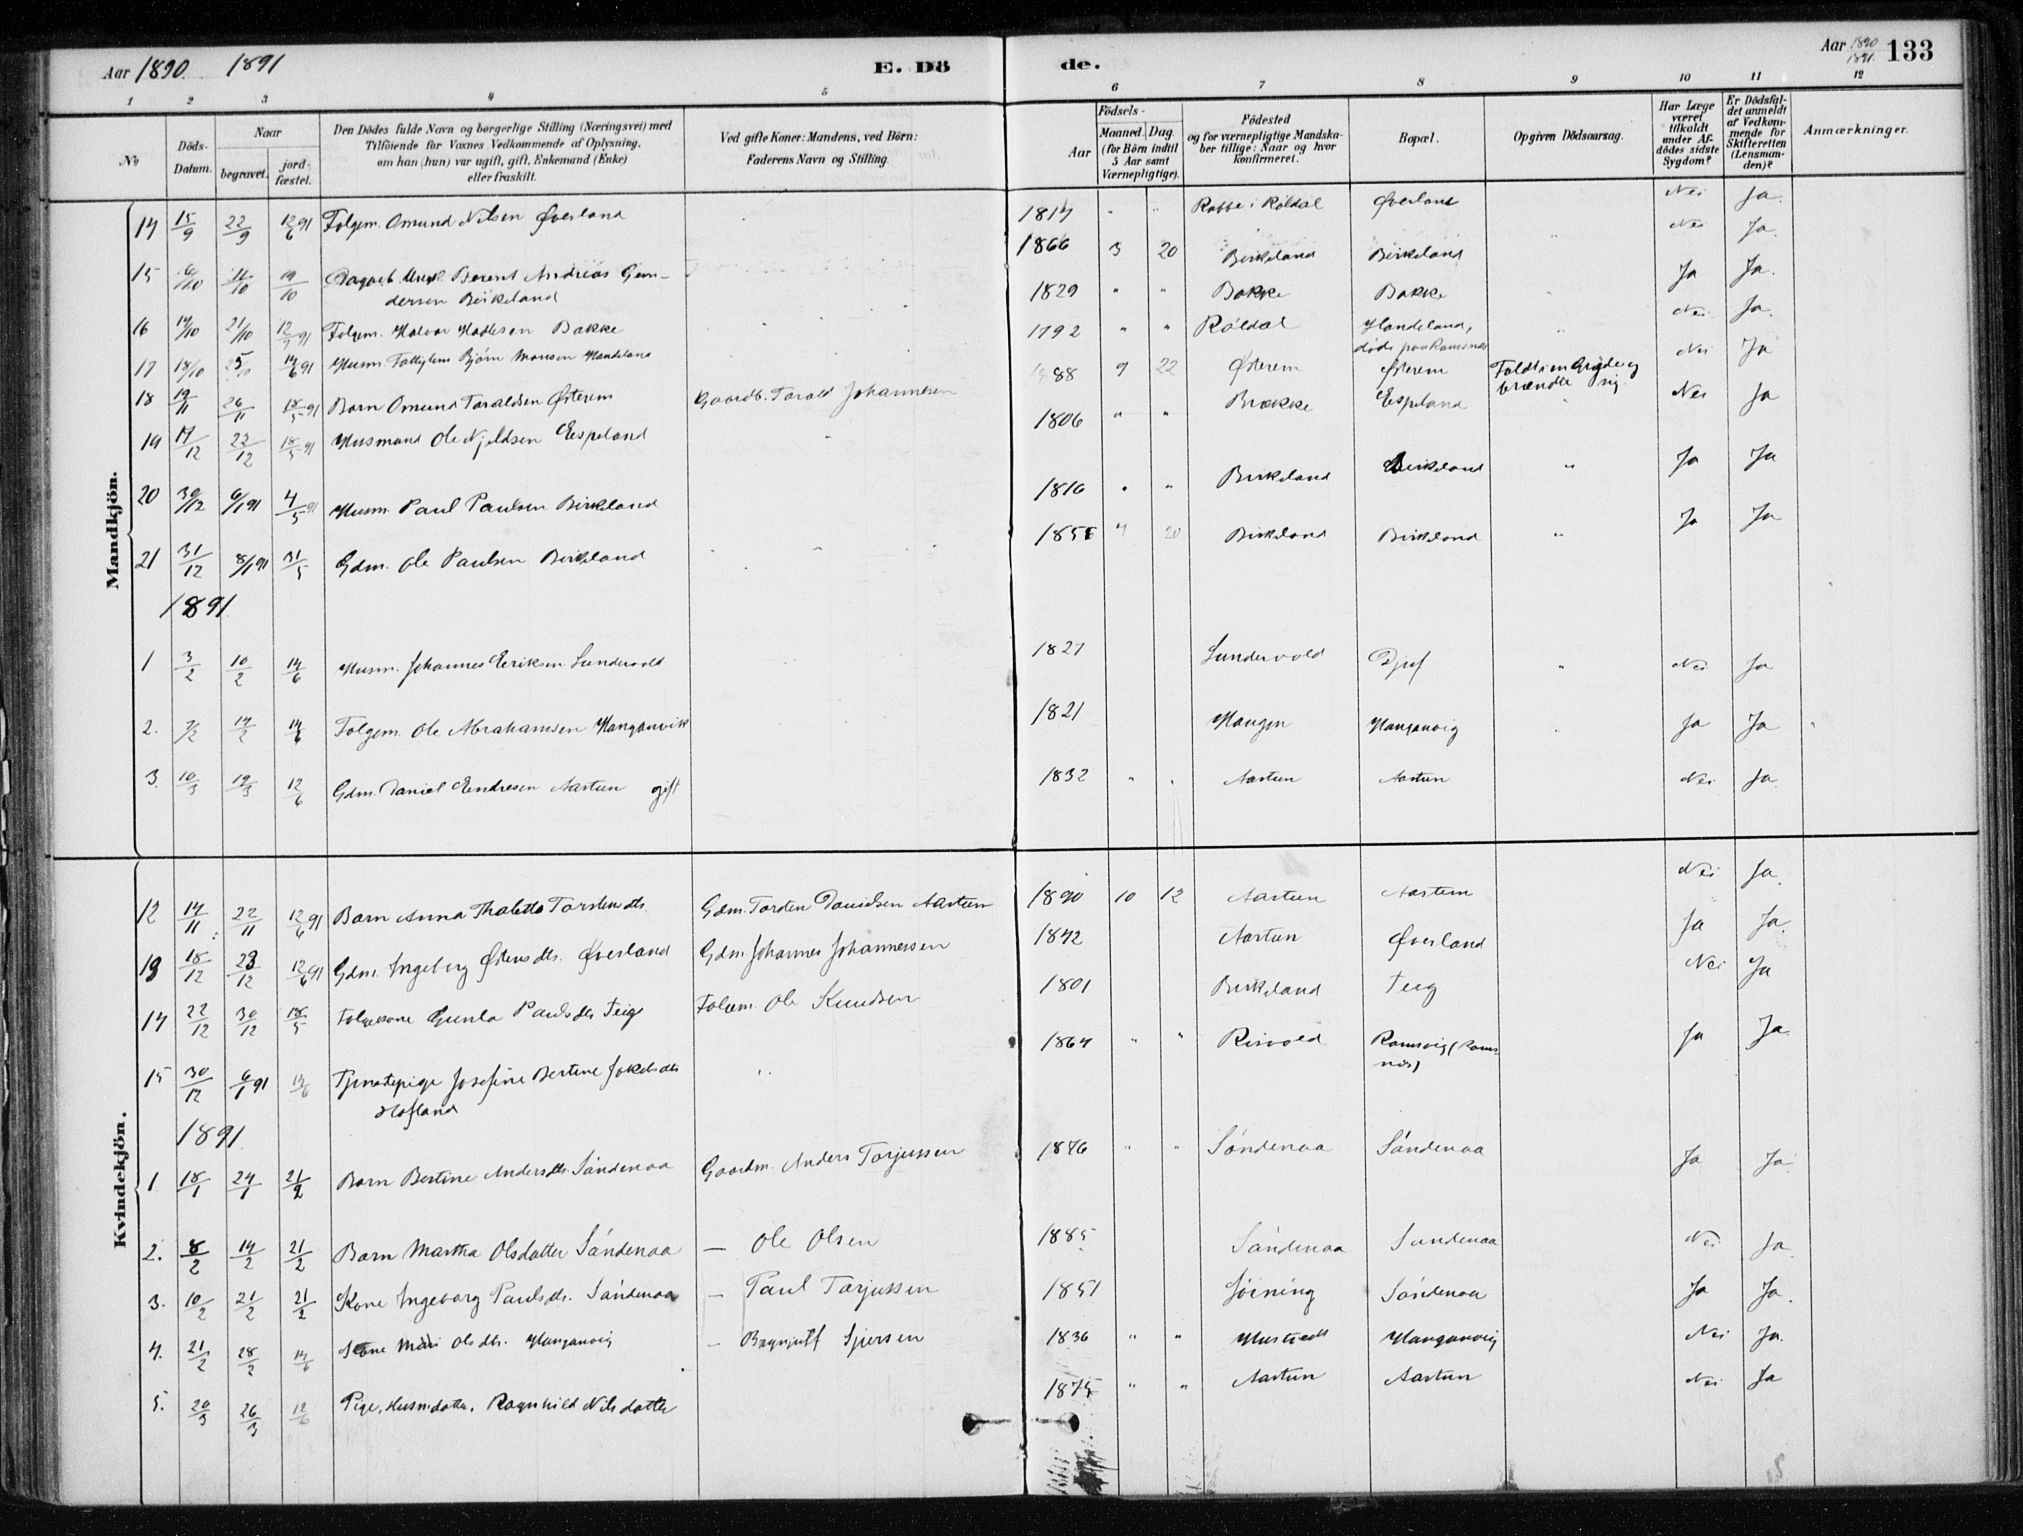 Aar 1890. 1891
E. Dö
de.
Aar 1890 1891. 133
1 2 3 4 5 6 7 8 9 10 11 12
No
Döds-Datum.
Naar
begravet.
jord-fæstet.
Den Dödes fulde Navn og borgerlige Stilling (Næringsvei) med
Tilföiende for Voxnes Vedkommende af Oplysning,
om han (hun) var ugift, gift, Enkemand (Enke)
eller fraskilt.
Ved gifte Koner: Mandens, ved Börn:
Faderens Navn og Stilling.
Födsels-
Aar
Maaned. Dag.
(for Börn indtil
5 Aar samt
Værnepligtige).
Födested
og for værnepligtige Mandska-
ber tillige: Naar og hvor
konfirmeret.
Bopæl.
Opgiven Dödsaarsag.
Har Læge
været
tilkaldt
under Af-
dödes sidste
Sygdom?
Er Dödsfal-
det anmeldt
af Vedkom-
mende for
Skifteretten
(Lensman-
den)?
Anmærkninger.
Mandkjön.
14 15/9 22/9 12/6 91 Folgem. Omund Nilsen Øverland 1817 " " Rabbe i Røldal Øverland Nei Ja.
15 6/10 11/10 19/10 Berent Andreas Gun-
dersen Birkeland 1866 3 20 Birkeland Birkeland Nei Ja.
16 14/10 21/10 12/7 91 Folgem. Halvor Hadlesen Bakke 1829 " " Bakke Bakke Ja Ja.
17 18/10 25/10 14/6 91 Husm. Fattiglem Bjørn Monsen Handeland 1792 " " Röldal Handeland,
døde paa Ramsnæs Nei Ja.
18 19/11 26/11 18/5 91 Barn Omund Taraldsen Østerem Gaardb. Tarald Johannesen 1888 9 22 Østerem Østerem Faldt i en Gryde og
brændte sig. Nei Ja
19 17/12 22/12 18/5 91 Husmand Ole Njeldsen Espeland 1806 " " Brekke Espeland Nei Ja
20 30/12 6/1 91 4/5 91 Husm. Paul Paulsen Birkeland 1816 " " Birkeland Birkeland " Ja Ja
21 31/12 8/1 91 31/5 Gdm. Ole Paulsen Birkeland 1856 4 20 Birkeland Birkeland " Ja Ja
1891
1 3/2 10/2 14/6 Husm. Johannes Eriksen Sundervold 1821 Sundervold Djuf Nei Ja
2. 7/2 14/2 14/6 Folgem. Ole Abrahamsen Hanganvik 1821 Haugen Hanganvig Ja Ja
3. 10/3 19/3 12/6 Gdm. Daniel Endresen Aartun gift 1832 " " Aartun Aartun Nei Ja.
Kvindekjön.
12 14/11 22/11 12/6 91 Barn Anna Thaletta Torstensdtr. Gdm. Torsten Danielsen Aartun 1890 10 12 Aartun Aartun Nei Ja.
13 18/12 23/12 12/6 91 Gdm. Ingeborg Østensdtr. Øverland Gdm. Johannes Johannessen 1842 Aartun Øverland Ja Ja.
14 22/12 30/12 18/5 Folgekone Gunla Paulsdtr Teig Folgem. Ole Knudsen 1801 Birkeland Teig Nei Ja
15 30/12 6/1 91 14/6 Tjenestepige Josefine Bertine Jokelsdtr
Hofland 1864 " " Risvold Ramsvig (Rams-
næs) Ja Ja.
1891
1 18/1 24/1 21/2 Barn Bertine Andersdtr. Söndenaa Gaardm. Anders Torjussen 1876 " " Söndenaa Söndenaa Ja Ja.
2. 8/2 14/2 21/2 Barn Martha Olsdatter Söndenaa — Ole Olsen 1885 Söndenaa Sundenaa Nei Ja.
3. 10/2 21/2 21/2 Kone Ingeborg Paulsdtr. Söndenaa — Paul Torjussen 1851 Jöining Söndenaa Ja Ja.
4. 21/2 28/2 14/6 Kone Mari Olsdtr. Hanganvig — Brynjulf Sjursen 1836 " " Hustvedt Hanganvig Nei Ja.
5. 20/3 26/3 12/6 Pige, Husmdatter. Ragnhild Nilsdatter 1875 " " Aartun Aartun Nei Ja